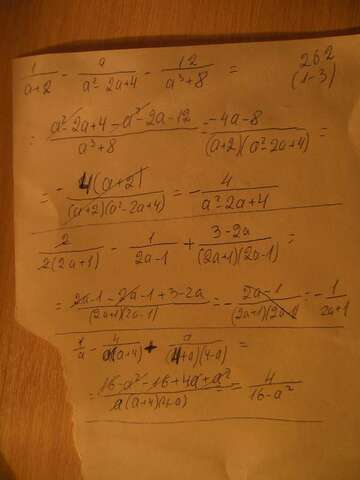 1/(a+2) - a/(a²-2a+4) - 12/(a³+8) =
262
(1-3)
= (a²-2a+4-a²-2a-12)/(a³+8) = (-4a-8)/((a+2)(a²-2a+4)) =
= - 4(a+2)/((a+2)(a²-2a+4)) = - 4/(a²-2a+4)
2/(2(2a+1)) - 1/(2a-1) + (3-2a)/((2a+1)(2a-1)) =
= (2a-1-2a-1+3-2a)/((2a+1)(2a-1)) = - (2a-1)/((2a+1)(2a-1)) = - 1/(2a+1)
1/a - 4/(a(a+4)) + a/((4+a)(4-a)) =
= (16-a²-16+4a+a²)/(a(a+4)(4-a)) = 4/(16-a²)